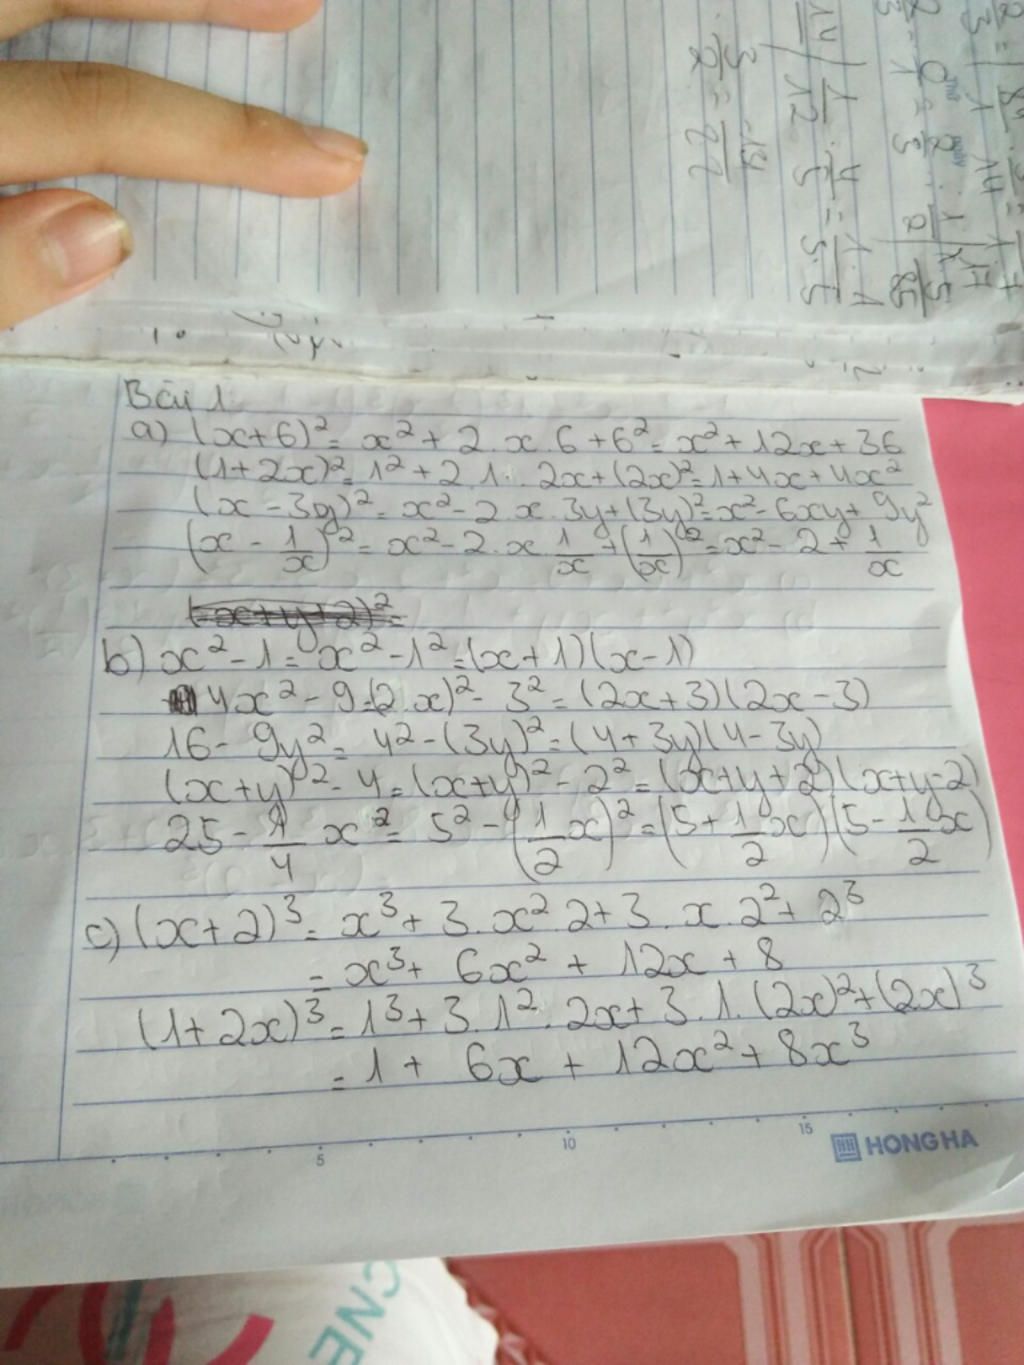 Bài 1
a) (x+6)² = x² + 2.x.6 + 6² = x² + 12x + 36
(1+2x)² = 1² + 2.1.2x + (2x)² = 1 + 4x + 4x²
(x - 3y)² = x² - 2.x.3y + (3y)² = x² - 6xy + 9y²
(x - 1/x)² = x² - 2.x 1/x + (1/x)² = x² - 2 + 1/x
b) x² - 1 = x² - 1² = (x+1)(x-1)
4x² - 9 = (2.x)² - 3² = (2x+3)(2x-3)
16 - 9y² = 4² - (3y)² = (4+3y)(4-3y)
(x+y)² - 4 = (x+y)² - 2² = (x+y+2)(x+y-2)
25 - 1/4 x² = 5² - (1/2 x)² = (5 + 1/2 x)(5 - 1/2 x)
c) (x+2)³ = x³ + 3.x².2 + 3.x.2² + 2³
= x³ + 6x² + 12x + 8
(1+2x)³ = 1³ + 3.1².2x + 3.1.(2x)² + (2x)³
= 1 + 6x + 12x² + 8x³
5 10 15
HONG HA
CNE